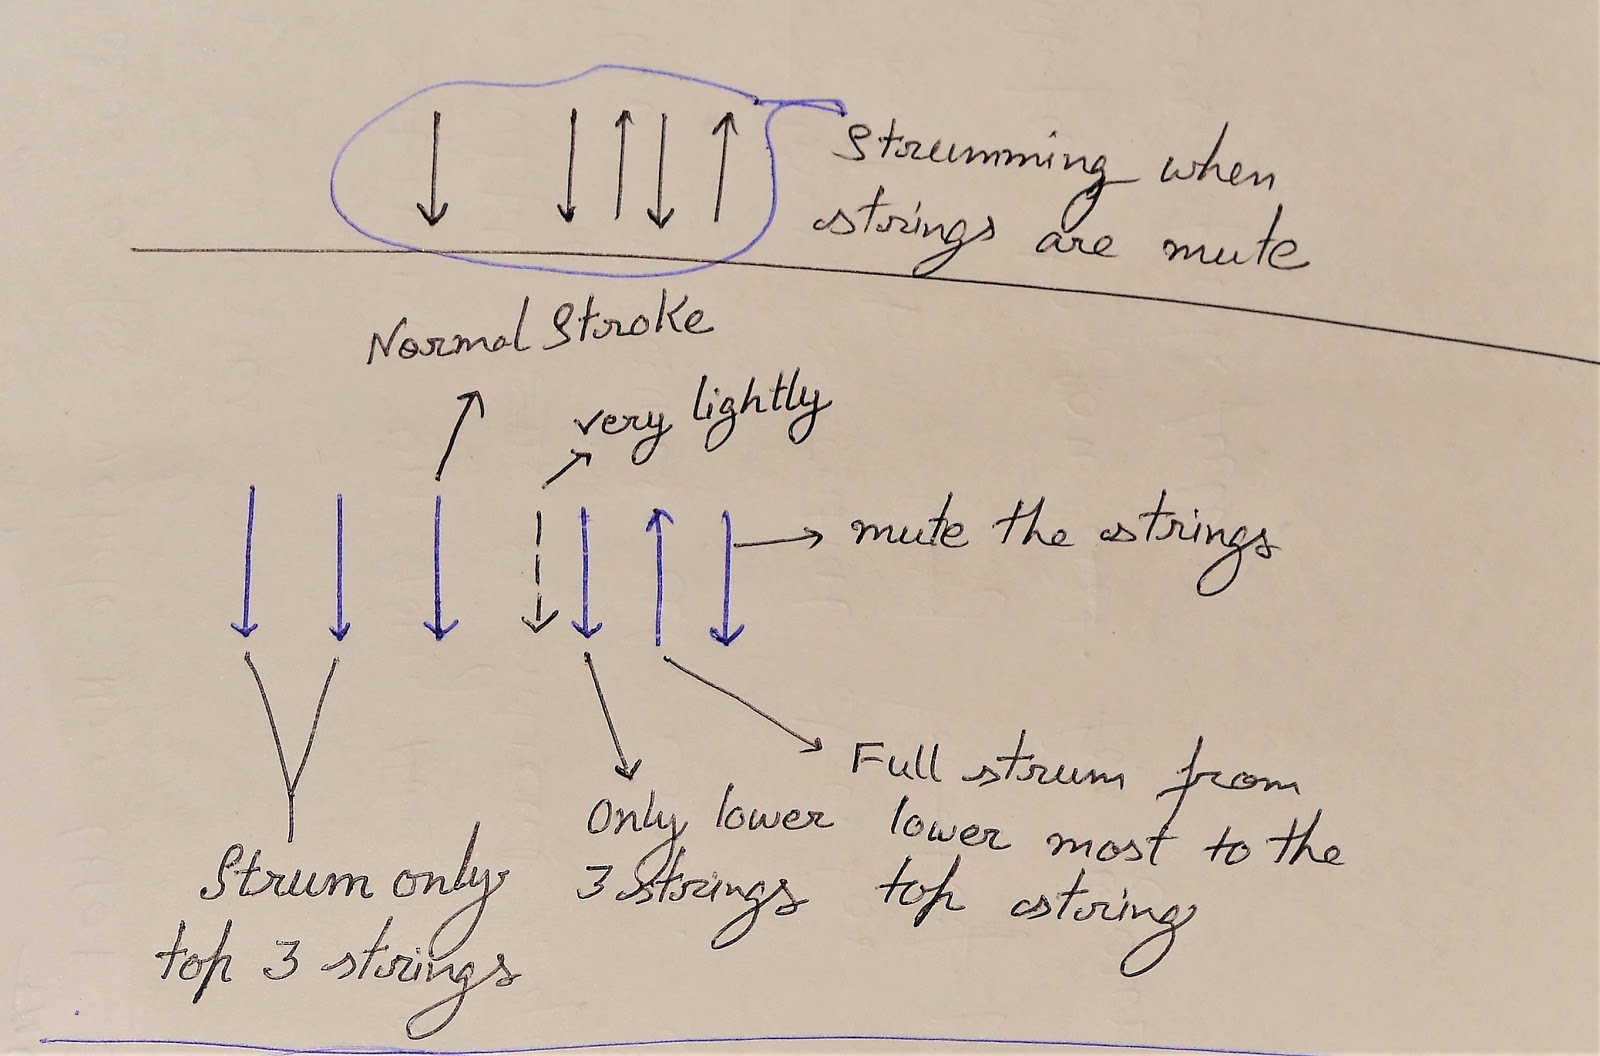 Strumming when
strings are mute
Normal Stroke
very lightly
mute the strings
Strum only
top 3 strings
Only lower
3 strings
Full strum from
lower most to the
top string